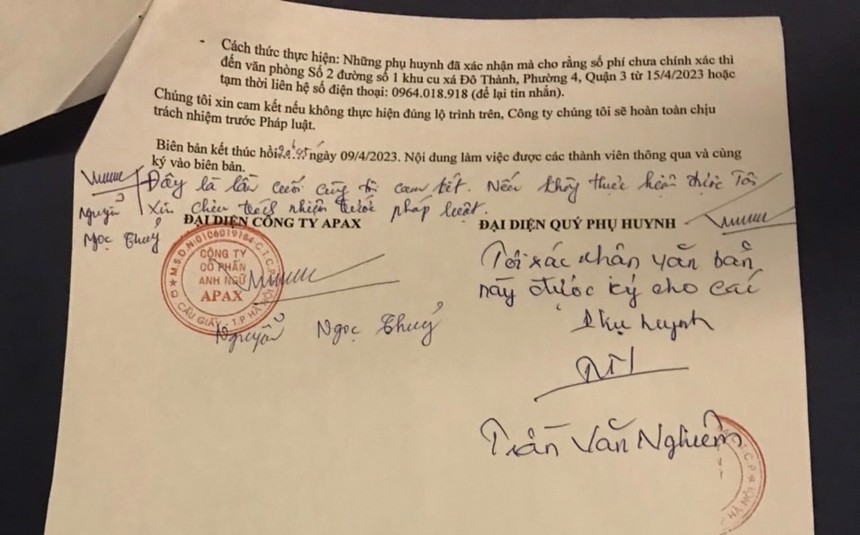 - Cách thức thực hiện: Những phụ huynh đã xác nhận mà cho rằng số phí chưa chính xác thì
đến văn phòng Số 2 đường số 1 khu cu xá Đô Thành, Phường 4, Quận 3 từ 15/4/2023 hoặc
tạm thời liên hệ số điện thoại: 0964.018.918 (để lại tin nhắn).
Chúng tôi xin cam kết nếu không thực hiện đúng lộ trình trên, Công ty chúng tôi sẽ hoàn toàn chịu
trách nhiệm trước Pháp luật.
Biên bản kết thúc hồi ngày 09/4/2023. Nội dung làm việc được các thành viên thông qua và cùng
ký vào biên bản.
Đây là lần cuối cùng tôi cam kết. Nếu không thực hiện được Tôi
xin chịu trách nhiệm trước pháp luật.
Nguyễn
Ngọc Thuỷ
ĐẠI DIỆN CÔNG TY APAX
ĐẠI DIỆN QUÝ PHỤ HUYNH
M.S.D.N:0106019164-C.T.C.P
CÔNG TY
CỔ PHẦN
ANH NGỮ
APAX
CẦU GIẤY - T.P HÀ NỘI
Nguyễn Ngọc Thuỷ
Tôi xác nhận văn bản
này được ký cho các
phụ huynh
Trần Văn Nghiêm